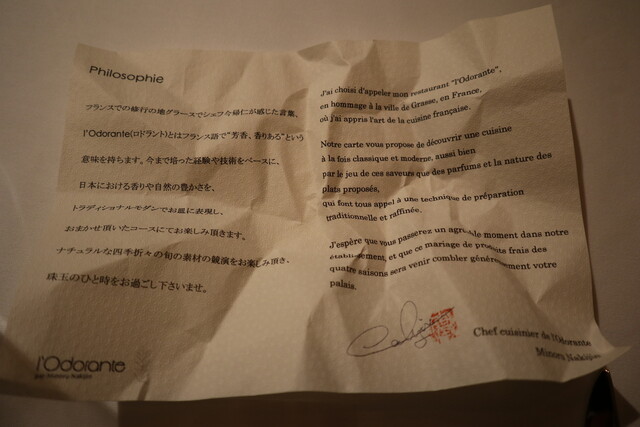 Philosophie
フランスでの修行の地グラースでシェフ今帰仁が感じた言葉、
l'Odorante(ロドラント)とはフランス語で"芳香、香りある"という
意味を持ちます。今まで培った経験や技術をベースに、
日本における香りや自然の豊かさを、
トラディショナルモダンでお皿に表現し、
おまかせ頂いたコースにてお楽しみ頂きます。
ナチュラルな四季折々の旬の素材の競演をお楽しみ頂き、
珠玉のひと時をお過ごし下さいませ。
l'Odorante
par Minoru Nakijin
J'ai choisi d'appeler mon restaurant "l'Odorante",
en hommage à la ville de Grasse, en France,
où j'ai appris l'art de la cuisine française.
Notre carte vous propose de découvrir une cuisine
à la fois classique et moderne, aussi bien
par le jeu de ces saveurs que des parfums et la nature des
plats proposés,
qui font tous appel à une technique de préparation
traditionnelle et raffinée.
J'espère que vous passerez un agréable moment dans notre
établissement, et que ce mariage de produits frais des
quatre saisons sera venir combler généreusement votre
palais.
Chef cuisinier de l'Odorante
Minoru Nakijin